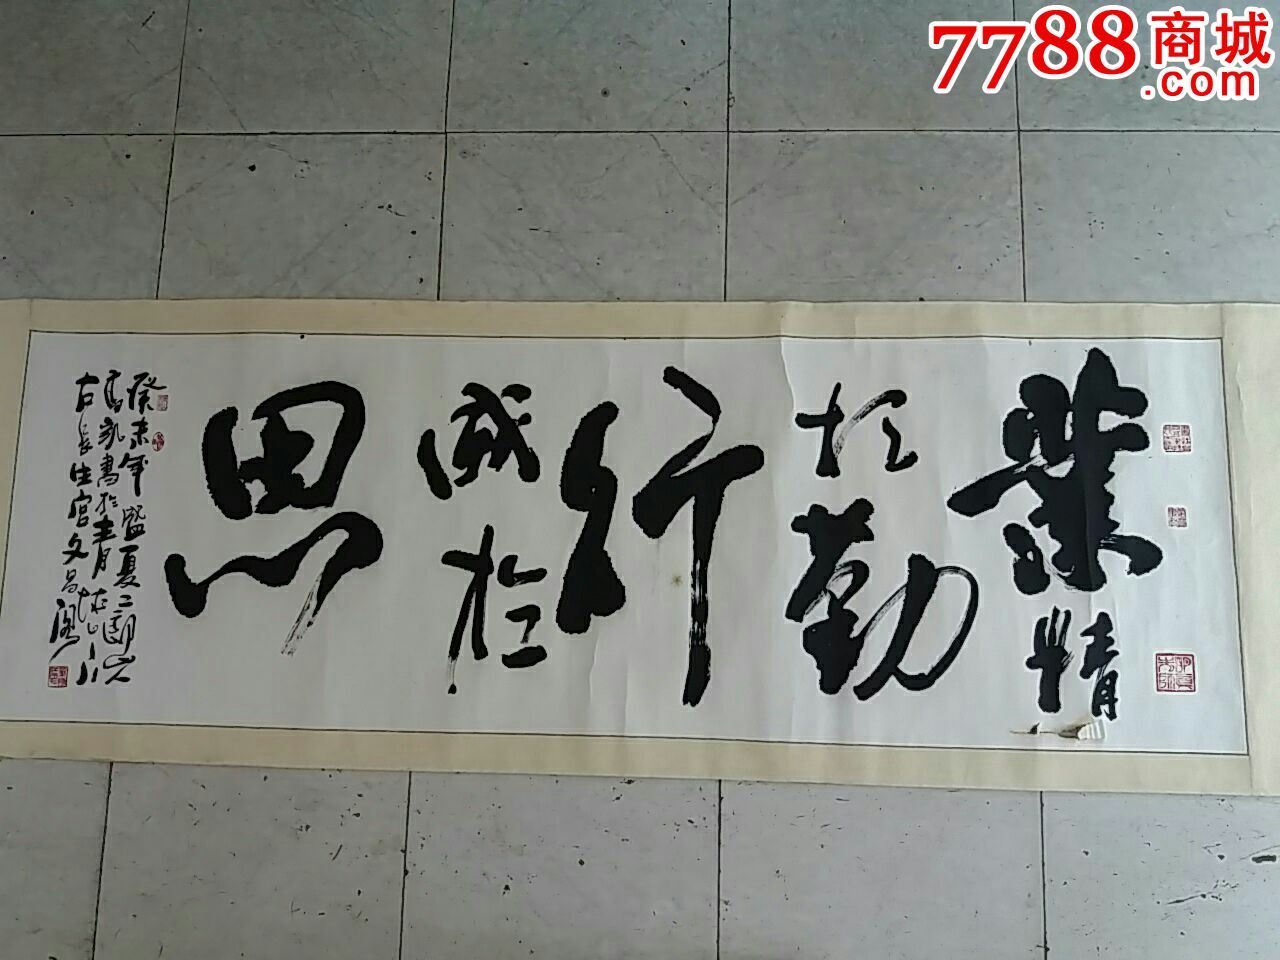 7788商城
.com
業精
於勤
行
成於
思
癸未年盛夏二朝
書於青城山
古長生宫文昌阁